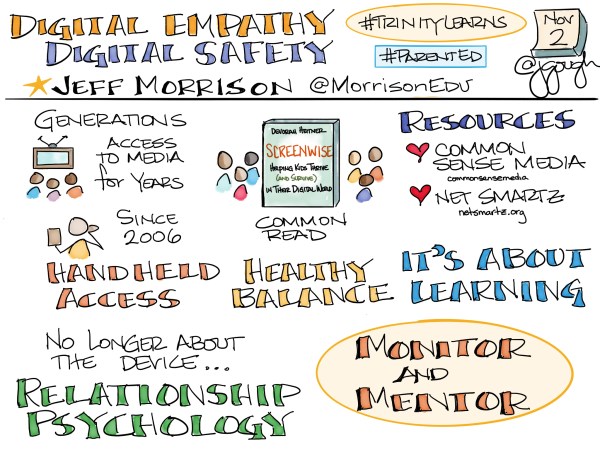 DIGITAL EMPATHY
DIGITAL SAFETY
#TRINITYLEARNS
#PARENTED
NOV
2
@jgough
JEFF MORRISON @MORRISONEDU
GENERATIONS
ACCESS
TO MEDIA
for YEARS
SINCE
2006
HANDHELD
ACCESS
DEVORAH HEITNER
SCREENWISE
HELPING KIDS THRIVE
(AND SURVIVE)
IN THEIR DIGITAL WORLD
COMMON
READ
HEALTHY
BALANCE
RESOURCES
COMMON
SENSE MEDIA
commonsensemedia
NET SMARTZ
netsmartz.org
IT'S ABOUT
LEARNING
NO LONGER ABOUT
THE DEVICE...
RELATIONSHIP
PSYCHOLOGY
MONITOR
AND
MENTOR